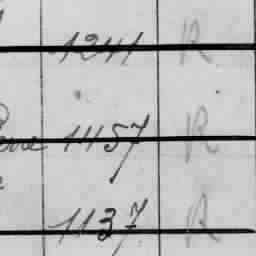 1241 R
1157 R
1137 R